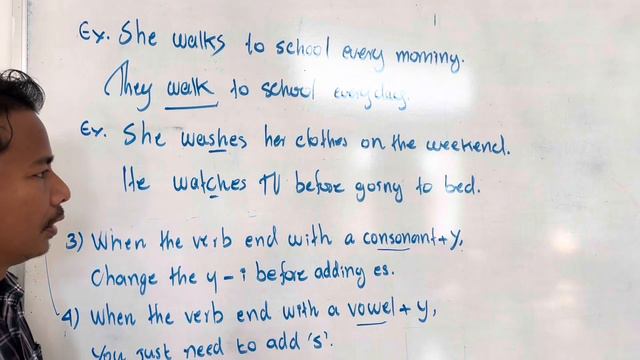 Ex. She walks to school every morning.
They walk to school everyday.
Ex. She washes her clothes on the weekend.
He watches TV before going to bed.
3) When the verb end with a consonant + y,
Change the y - i before adding es.
4) When the verb end with a vowel + y,
You just need to add 's'.